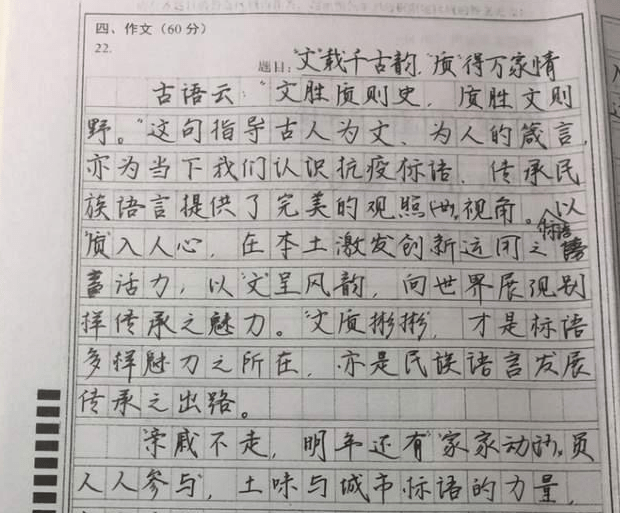 四、作文(60分)
22.
题目:"文"载千古韵,"质"得万家情
古语云:"文胜质则史,质胜文则
野。"这句指导古人为文、为人的箴言,
亦为当下我们认识抗疫标语、传承民
族语言提供了完美的观照视角。以
"质"入人心,在本土激发创新运用之标语
活力,以"文"呈风韵,向世界展现别
样传承之魅力。"文质彬彬",才是标语
多样魅力之所在,亦是民族语言发展
传承之出路。
"亲戚不走,明年还有"家家动员
人人参与,土味与城市标语的力量,